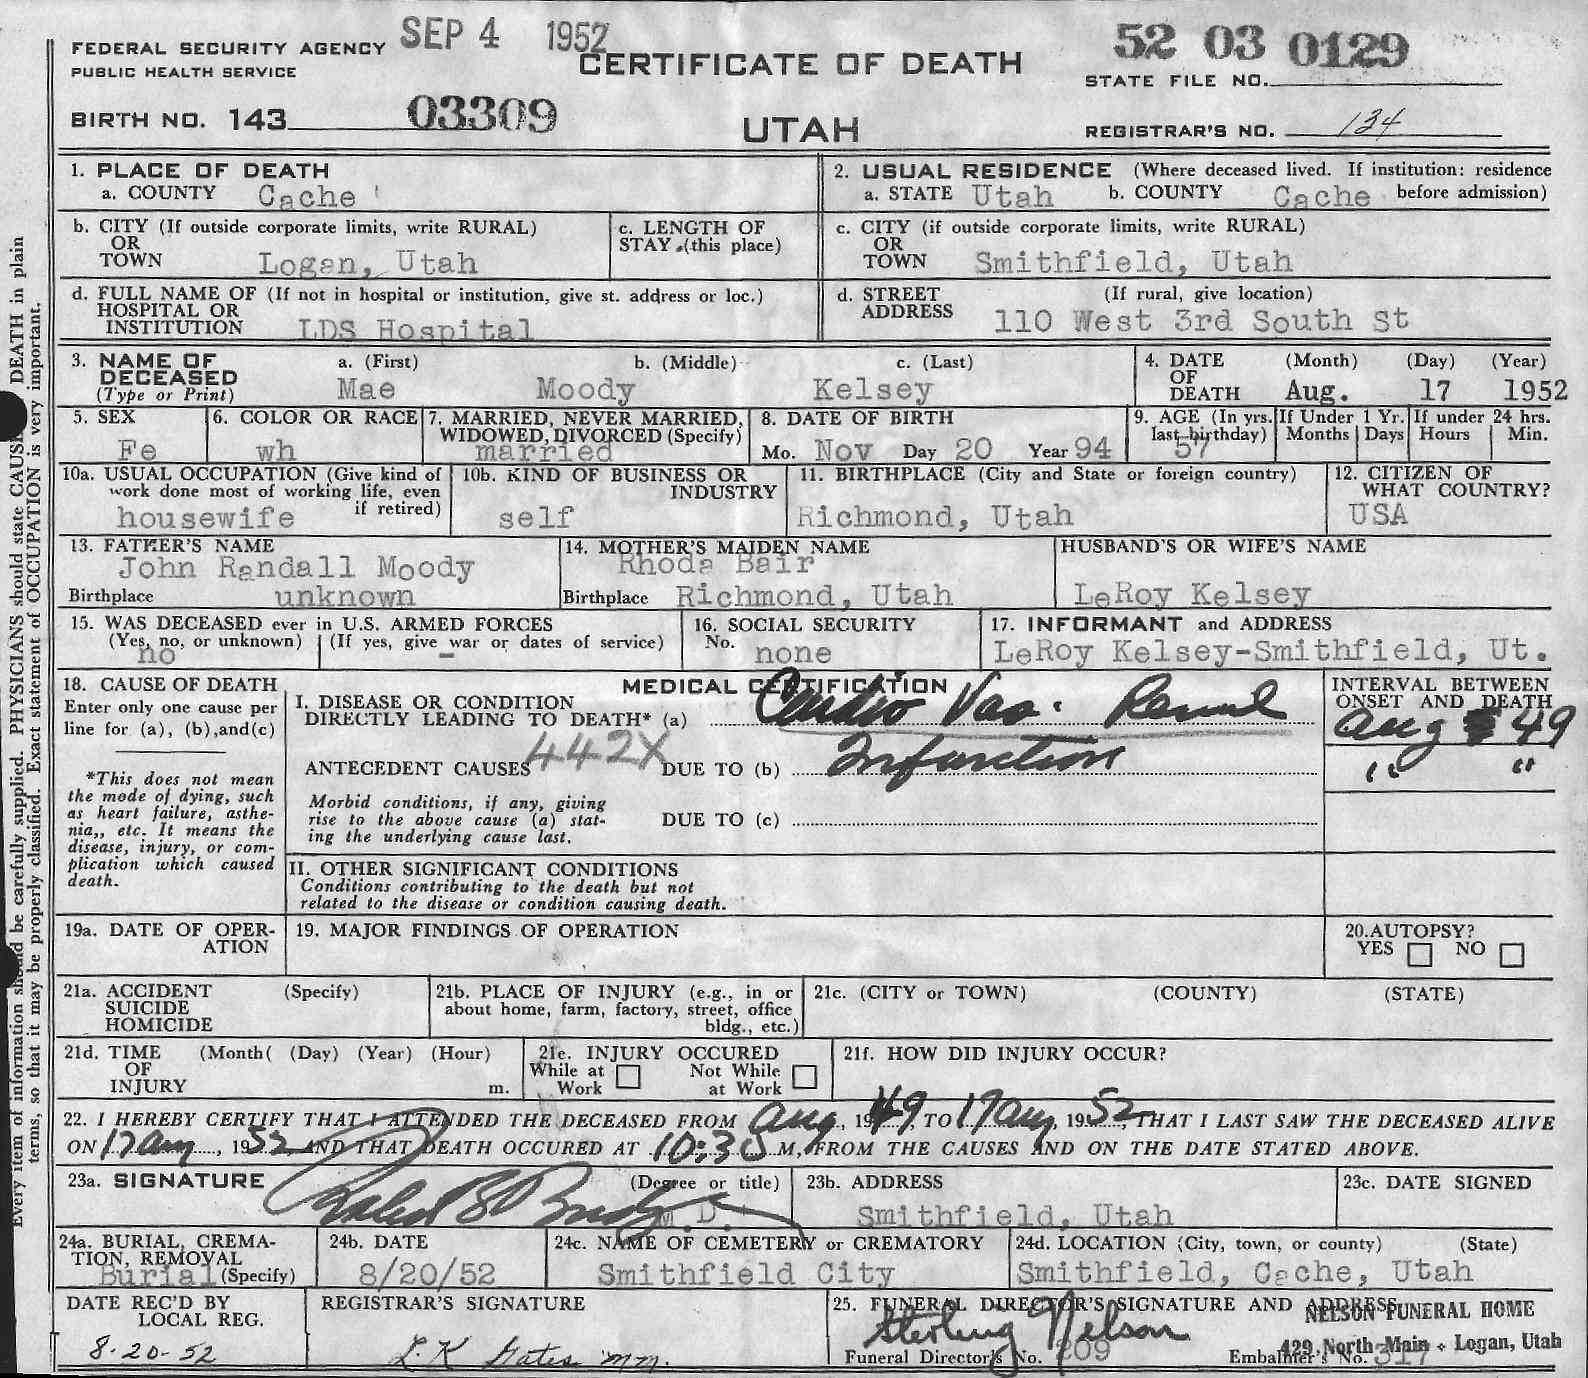 SEP 4 1952
52 03 0129
FEDERAL SECURITY AGENCY
PUBLIC HEALTH SERVICE
CERTIFICATE OF DEATH
STATE FILE NO.
BIRTH NO. 143 03309
UTAH
REGISTRAR'S NO. 134
1. PLACE OF DEATH
a. COUNTY Cache
2. USUAL RESIDENCE (Where deceased lived. If institution: residence before admission)
a. STATE Utah b. COUNTY Cache
b. CITY (If outside corporate limits, write RURAL)
OR
TOWN Logan, Utah
c. LENGTH OF
STAY (this place)
c. CITY (if outside corporate limits, write RURAL)
OR
TOWN Smithfield, Utah
d. FULL NAME OF (If not in hospital or institution, give st. address or loc.)
HOSPITAL OR
INSTITUTION LDS Hospital
d. STREET (If rural, give location)
ADDRESS 110 West 3rd South St
3. NAME OF
DECEASED
(Type or Print)
a. (First) b. (Middle) c. (Last)
Mae Moody Kelsey
4. DATE (Month) (Day) (Year)
OF
DEATH Aug. 17 1952
5. SEX
Fe
6. COLOR OR RACE
wh
7. MARRIED, NEVER MARRIED,
WIDOWED, DIVORCED (Specify)
married
8. DATE OF BIRTH
Mo. Nov Day 20 Year 94
9. AGE (In yrs. last birthday)
57
If Under 1 Yr.
Months Days
If under 24 hrs.
Hours Min.
10a. USUAL OCCUPATION (Give kind of
work done most of working life, even
if retired)
housewife
10b. KIND OF BUSINESS OR
INDUSTRY
self
11. BIRTHPLACE (City and State or foreign country)
Richmond, Utah
12. CITIZEN OF
WHAT COUNTRY?
USA
13. FATHER'S NAME
John Randall Moody
Birthplace unknown
14. MOTHER'S MAIDEN NAME
Rhoda Bair
Birthplace Richmond, Utah
HUSBAND'S OR WIFE'S NAME
LeRoy Kelsey
15. WAS DECEASED ever in U.S. ARMED FORCES
(Yes, no, or unknown) (If yes, give war or dates of service)
no -
16. SOCIAL SECURITY
No. none
17. INFORMANT and ADDRESS
LeRoy Kelsey-Smithfield, Ut.
18. CAUSE OF DEATH
Enter only one cause per
line for (a), (b),and(c)
*This does not mean
the mode of dying, such
as heart failure, asthe-
nia,, etc. It means the
disease, injury, or com-
plication which caused
death.
MEDICAL CERTIFICATION
I. DISEASE OR CONDITION
DIRECTLY LEADING TO DEATH* (a) Cardio Vas. Renal
442X
ANTECEDENT CAUSES DUE TO (b) Infarction
Morbid conditions, if any, giving
rise to the above cause (a) stat-
ing the underlying cause last.
DUE TO (c)
INTERVAL BETWEEN
ONSET AND DEATH
Aug 49
" "
II. OTHER SIGNIFICANT CONDITIONS
Conditions contributing to the death but not
related to the disease or condition causing death.
19a. DATE OF OPER-
ATION
19. MAJOR FINDINGS OF OPERATION
20.AUTOPSY?
YES NO
21a. ACCIDENT (Specify)
SUICIDE
HOMICIDE
21b. PLACE OF INJURY (e.g., in or
about home, farm, factory, street, office
bldg., etc.)
21c. (CITY or TOWN) (COUNTY) (STATE)
21d. TIME (Month( (Day) (Year) (Hour)
OF
INJURY m.
21e. INJURY OCCURED
While at Work Not While at Work
21f. HOW DID INJURY OCCUR?
22. I HEREBY CERTIFY THAT I ATTENDED THE DECEASED FROM Aug, 1949, TO 17 Aug, 1952, THAT I LAST SAW THE DECEASED ALIVE
ON 17 Aug, 1952 AND THAT DEATH OCCURED AT 10:30 M, FROM THE CAUSES AND ON THE DATE STATED ABOVE.
23a. SIGNATURE (Degree or title)
M.D.
23b. ADDRESS
Smithfield, Utah
23c. DATE SIGNED
24a. BURIAL, CREMA-
TION, REMOVAL
Burial (Specify)
24b. DATE
8/20/52
24c. NAME OF CEMETERY or CREMATORY
Smithfield City
24d. LOCATION (City, town, or county) (State)
Smithfield, Cache, Utah
DATE REC'D BY
LOCAL REG.
8-20-52
REGISTRAR'S SIGNATURE
25. FUNERAL DIRECTOR'S SIGNATURE AND ADDRESS
Sterling Nelson
NELSON FUNERAL HOME
429 North Main Logan, Utah
Funeral Director's No. 209
Embalmer's No. 317
Every item of information should be carefully supplied. PHYSICIANS should state CAUSE DEATH in plain
terms, so that it may be properly classified. Exact statement of OCCUPATION is very important.